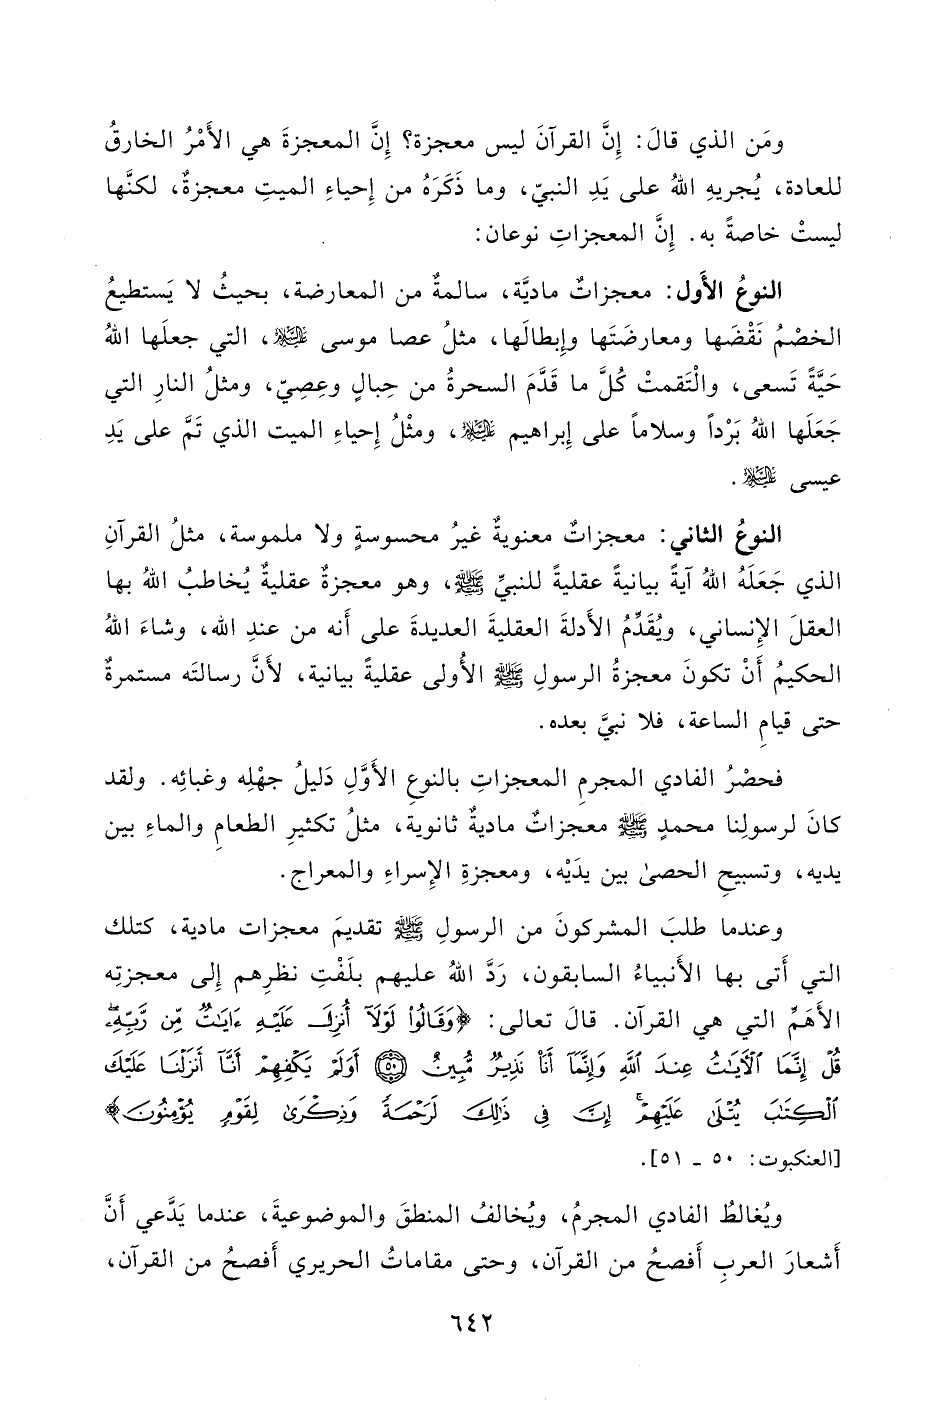 ومَن الذي قالَ: إِنَّ القرآنَ ليس معجزة؟ إِنَّ المعجزةَ هي الأَمْرُ الخارقُ
للعادة، يُجريهِ اللهُ على يَدِ النبيّ، وما ذَكَرَهُ من إِحياءِ الميتِ معجزةٌ، لكنَّها
ليستْ خاصةً به. إِنَّ المعجزاتِ نوعان:
النوعُ الأَول: معجزاتٌ ماديَّة، سالمةٌ من المعارضة، بحيثُ لا يَستطيعُ
الخصْمُ نَقْضَها ومعارضَتَها وإِبطالَها، مثلُ عصا موسى عليه السلام، التي جعلَها اللهُ
حَيَّةً تَسعى، والْتَقمتْ كُلَّ ما قَدَّمَ السحرةُ من حِبالٍ وعِصِيّ، ومثلُ النارِ التي
جَعَلَها اللهُ بَرْداً وسلاماً على إِبراهيم عليه السلام، ومثْلُ إِحياءِ الميت الذي تَمَّ على يَدِ
عيسى عليه السلام.
النوعُ الثاني: معجزاتٌ معنويةٌ غيرُ محسوسةٍ ولا ملموسة، مثلُ القرآنِ
الذي جَعَلَهُ اللهُ آيةً بيانيةً عقليةً للنبيِّ ﷺ، وهو معجزةٌ عقليةٌ يُخاطبُ اللهُ بها
العقلَ الإِنساني، ويُقَدِّمُ الأدلةَ العقليةَ العديدةَ على أَنه من عندِ الله، وشاءَ اللهُ
الحكيمُ أَنْ تكونَ معجزةُ الرسولِ ﷺ الأُولى عقليةً بيانية، لأَنَّ رسالتَه مستمرةٌ
حتى قيامِ الساعة، فلا نبيَّ بعده.
فحصْرُ الفادي المجرمِ المعجزاتِ بالنوعِ الأَوَّلِ دَليلُ جهْلِه وغبائِه. ولقد
كانَ لرسولِنا محمدٍ ﷺ معجزاتٌ ماديةٌ ثانوية، مثلُ تكثيرِ الطعامِ والماءِ بين
يديه، وتسبيحِ الحصىٰ بين يدَيْه، ومعجزةِ الإِسراءِ والمعراج.
وعندما طلبَ المشركونَ من الرسولِ ﷺ تقديمَ معجزات مادية، كتلك
التي أَتى بها الأَنبياءُ السابقون، رَدَّ اللهُ عليهم بلَفْتِ نظرِهم إِلى معجزتِه
الأَهَمِّ التي هي القرآن. قالَ تعالى: ﴿وَقَالُواْ لَوْلَآ أُنزِلَ عَلَيْهِ ءَايَٰتٌ مِّن رَّبِّهِۦ
قُلْ إِنَّمَا ٱلْأَيَٰتُ عِندَ ٱللَّهِ وَإِنَّمَآ أَنَا۠ نَذِيرٌ مُّبِينٌ ٥٠ أَوَلَمْ يَكْفِهِمْ أَنَّآ أَنزَلْنَا عَلَيْكَ
ٱلْكِتَٰبَ يُتْلَىٰ عَلَيْهِمْ إِنَّ فِى ذَٰلِكَ لَرَحْمَةً وَذِكْرَىٰ لِقَوْمٍ يُؤْمِنُونَ﴾
[العنكبوت: ٥٠ - ٥١].
ويُغالطُ الفادي المجرمُ، ويُخالفُ المنطقَ والموضوعيةَ، عندما يَدَّعي أَنَّ
أَشعارَ العربِ أَفصحُ من القرآن، وحتى مقاماتُ الحريري أَفصحُ من القرآن،
٦٤٢